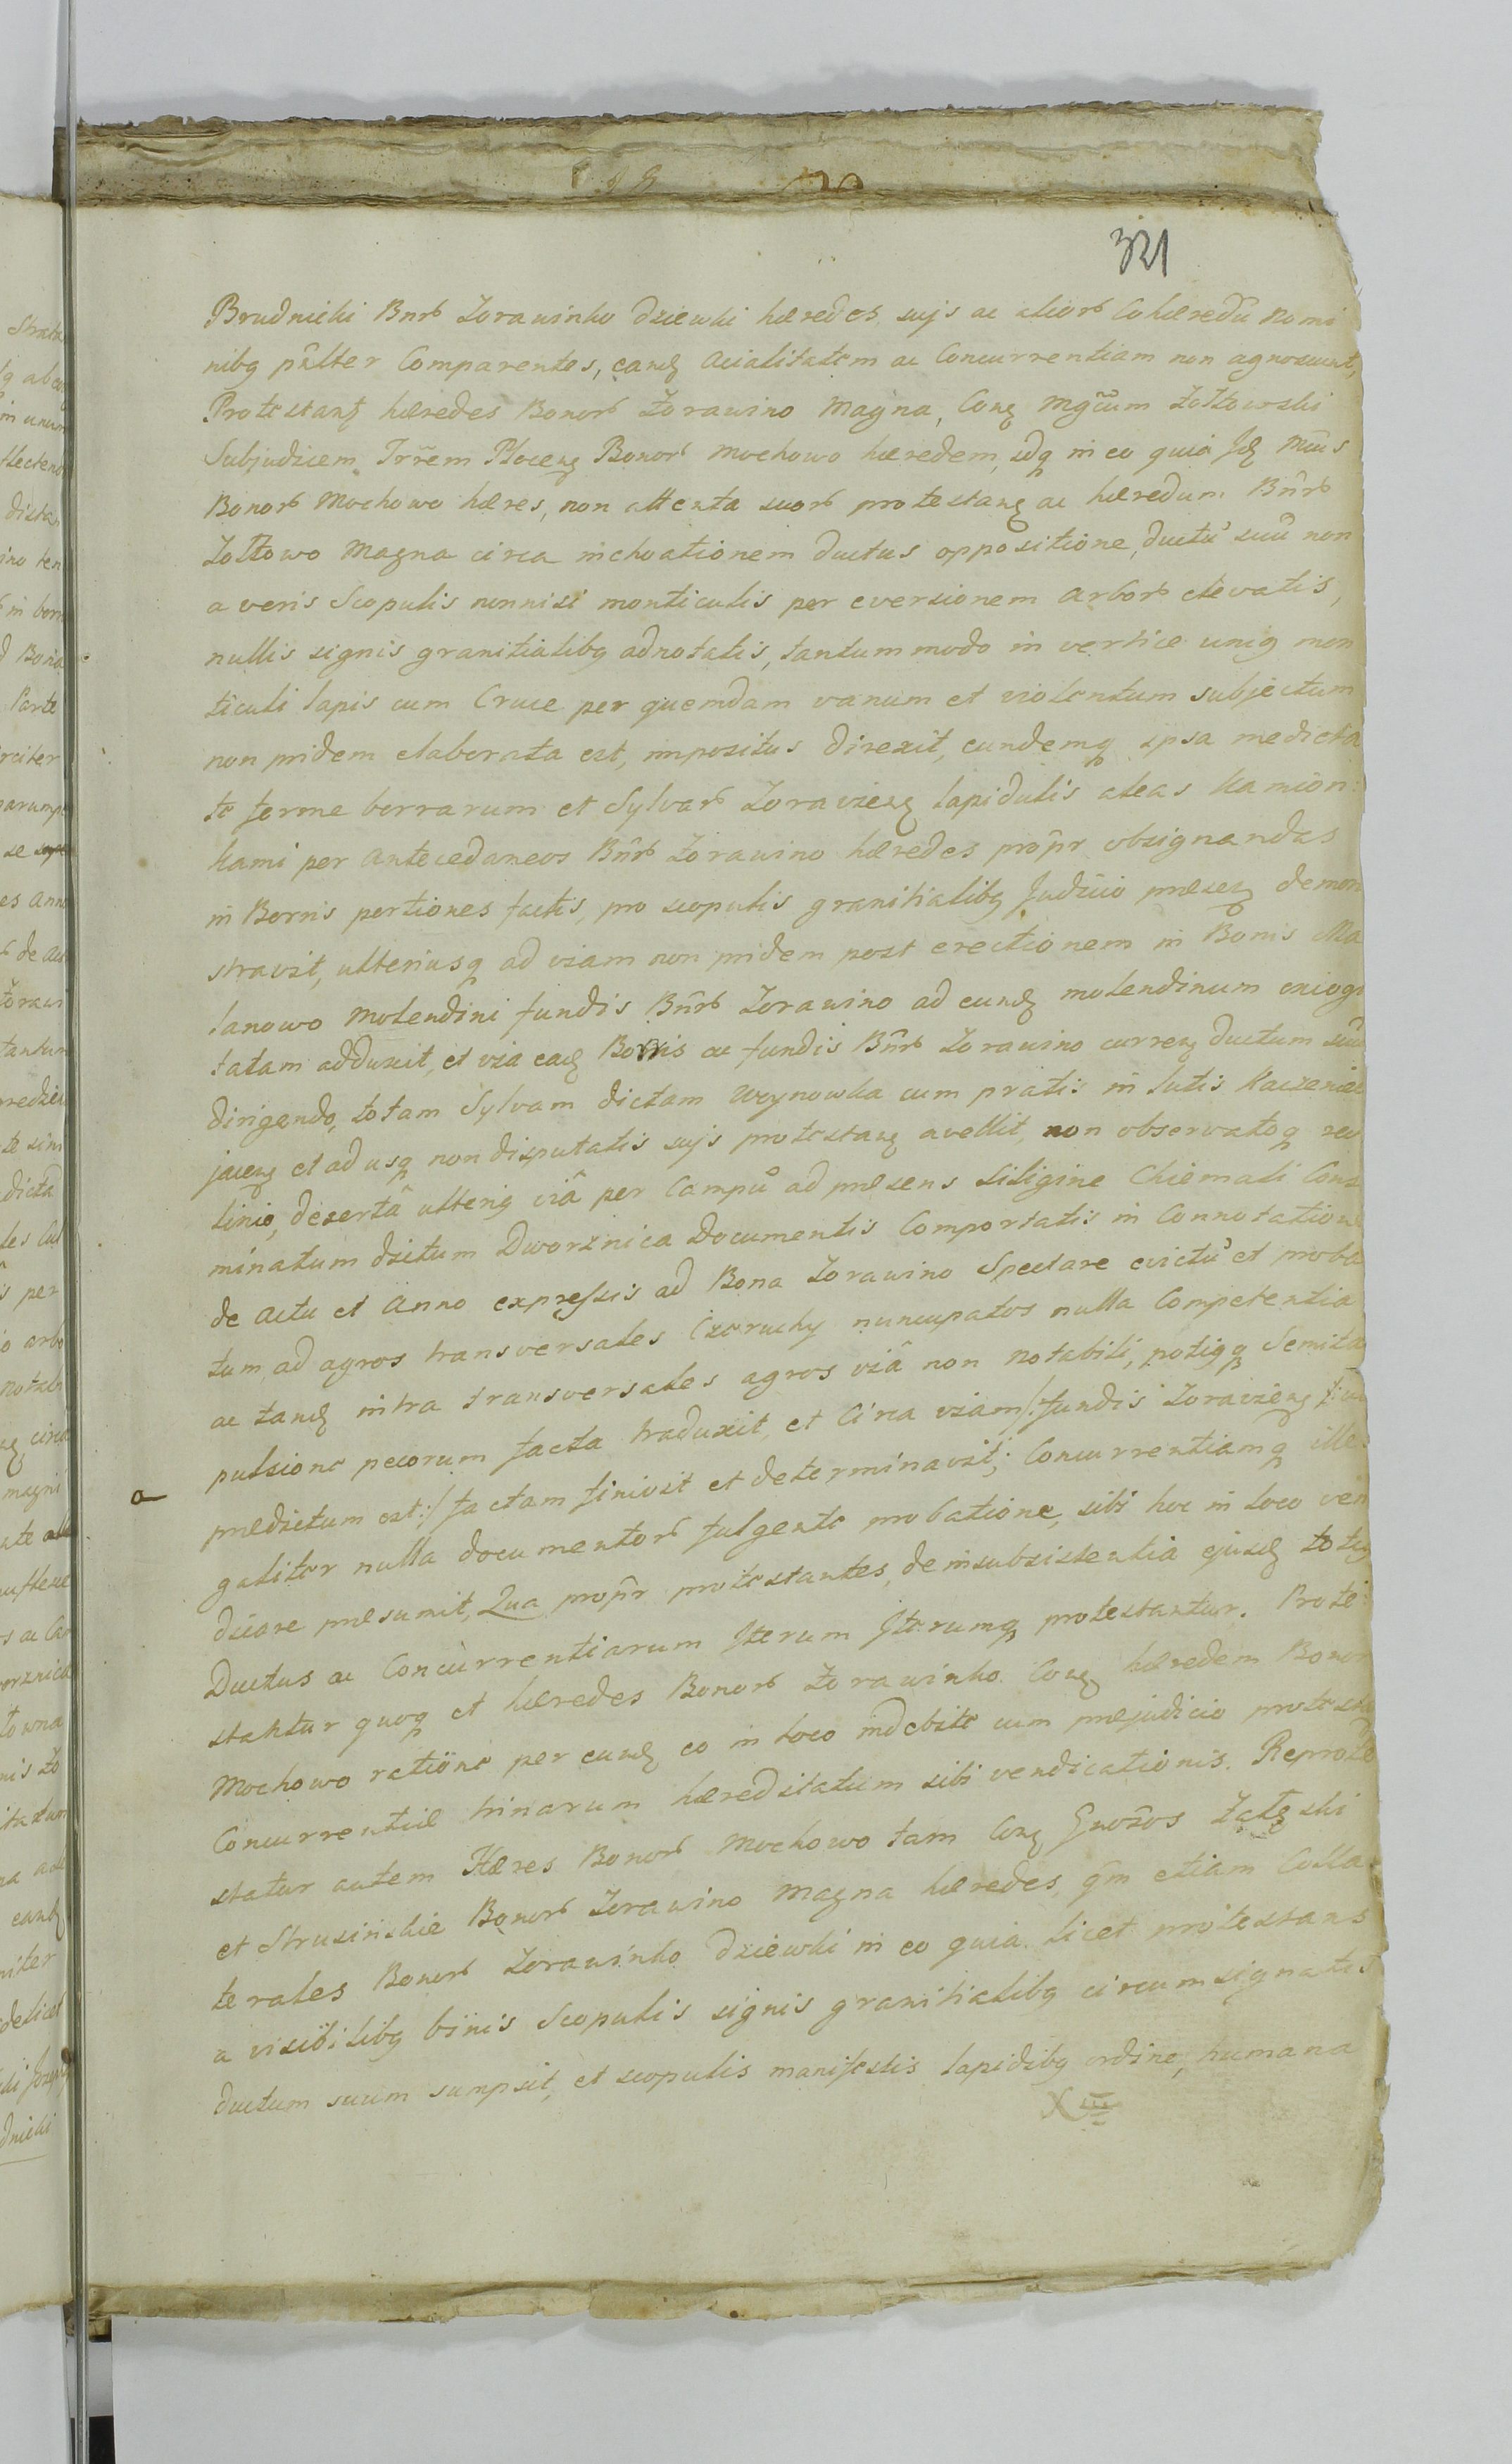 321
Brudnicki Bnrb Zorawinko dziewki hæredes sujs ac aliorb Cohæredũ nomi
nibq pñlter Comparentes, eandȝ acialitatem ac Concurrentiam non agnoscunt,
Protestantȝ hæredes Bonorb Zorawino Magna, Conȝ Mgcum Zołtowski
Subjudicem Trrem Plocenȝ Bonorb Mochowo hæredem, idq in eo quia Jdȝ Mcus
Bonorb Mochowo hæres, non attenta suorb protestanȝ ac hæredum Bnrb
Zołtowo Magna circa inchoationem ductus oppositione, ductũ suũ non
a veris Scopulis nonnisi monticulis per eversionem arborb elevatis,
nullis signis granitialibq adnotatis, tantummodo in vertice uniq mon
ticuli lapis cum Cruce per quemdam vanum et violentum subjectum
non pridem elaborata est, impositus direxit, eundemq ipsa medieta
te ferme borrarum et Sylvarb Zoravienȝ lapidulis aleas Kamion:
kami per antecedaneos Bnrb Zorawino hæredes propr obsignandas
in Borris portiones factis, pro scopulis granitialibq Judicio præsenȝ demon
stravit, ulteriusq ad viam non pridem post erectionem in Bonis Ma
lanowo Molendini fundis Bnrb Zorawino ad eundȝ molendinum
tatam adduxit, et via eadȝ Borris ac fundis Bnrb Zorawino currenȝ ductum suũ
dirigendo, totam Sylvam dictam Woynowka cum pratis in lutis
jacenȝ et adusq non disputatis sujs protestanȝ avellit, non observatoq rec
tinio, desertâ ulteriq viâ per Campũ ad præsens siligine Chiemali Cons
minatum dictum Dworznica Documentis Comportatis in Connotatione
de actu et Anno expressis ad Bona Zorawino Spectare evictũ et proba
tum, ad agros transversales nuncupatos nulla Competentia
ac tandȝ intra transversales agros viâ non notabili, potiqq Semita
pulsione pecorum facta traduxit, et Circa viam /: fundis Zoravienȝ
prædictum est :/ factam finivit et determinavit; Concurrentiamq ille
galiter nulla documentorb fulgente probatione, sibi hoc in loco ven
dicare præsumit, Qua propr protestantes, de insubsistentia ejusdȝ totiq
Ductus ac Concurrentiarum Jterum Jterumq protestantur. Prote:
stantur quoq et hæredes Bonorb Zorawinko Conȝ hæredem Bonor
Mochowo ratione per eundȝ eo in loco indebite cum præjudicio protestanȝ
Concurrentiæ trinarum hæreditatum sibi vendicationis. Reprote
statur autem Hæres Bonorb Mochowo tam Conȝ Gnosos Zatȩski
et Strusinskie Bonorb Zorawino Magna hæredes, qm etiam Colla
terales Bonorb Zorawinko dziewki in eo quia licet protestans
a visibilibq binis Scopulis signis granitialibq circumsignatis
ductum suum sumpsit, et scopulis manifestis lapidibq ordine, humana